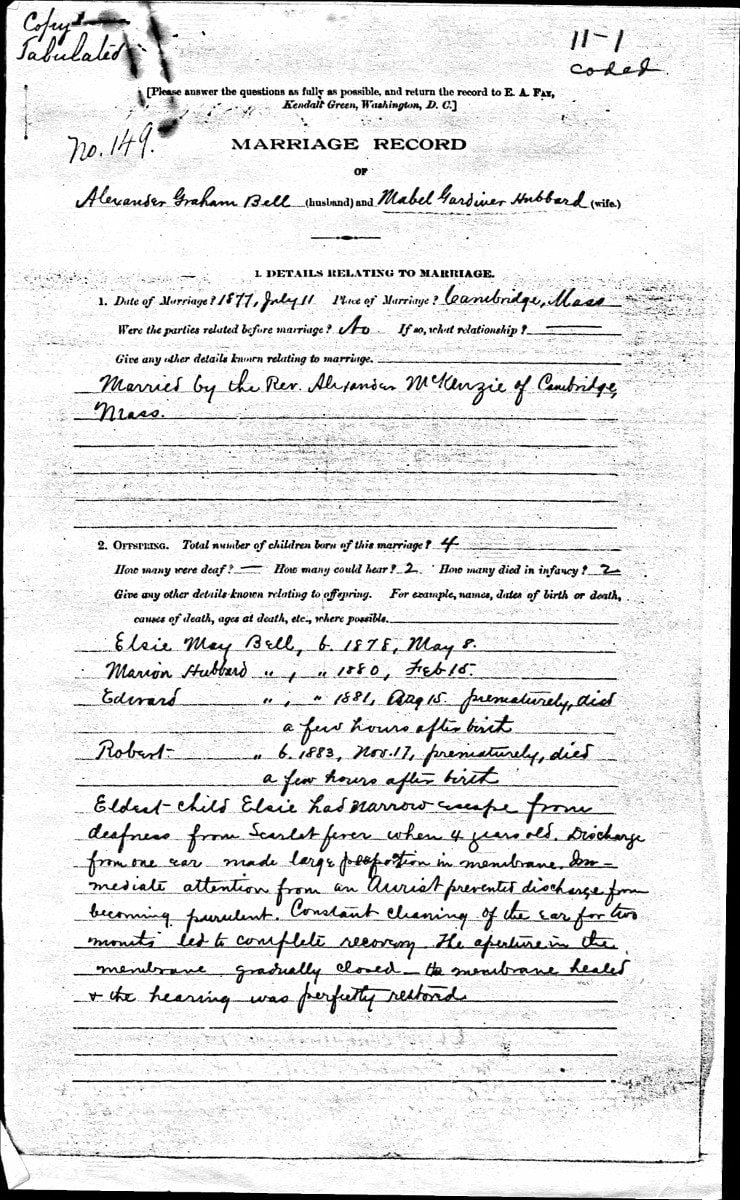 Copy
Tabulated
11-1
coded
[Please answer the questions as fully as possible, and return the record to E. A. FAY,
Kendall Green, Washington, D. C.]
No. 149.
MARRIAGE RECORD
OF
Alexander Graham Bell (husband) and Mabel Gardiner Hubbard (wife.)
1. DETAILS RELATING TO MARRIAGE.
1. Date of Marriage? 1877, July 11 Place of Marriage? Cambridge, Mass
Were the parties related before marriage? No If so, what relationship? —
Give any other details known relating to marriage.
Married by the Rev. Alexander McKenzie of Cambridge,
Mass.
2. OFFSPRING. Total number of children born of this marriage? 4
How many were deaf? — How many could hear? 2 How many died in infancy? 2
Give any other details known relating to offspring. For example, names, dates of birth or death,
causes of death, ages at death, etc., where possible.
Elsie May Bell, b. 1878, May 8.
Marion Hubbard " , " 1880, Feb 15.
Edward " , " 1881, Aug 15. prematurely, died
a few hours after birth
Robert " b. 1883, Nov. 17, prematurely, died
a few hours after birth
Eldest child Elsie had narrow escape from
deafness from Scarlet fever when 4 years old. Discharge
from one ear made large in membrane. Im-
mediate attention from an Aurist prevented discharge from
becoming purulent. Constant cleaning of the ear for two
months led to complete recovery. The aperture in the
membrane gradually closed — the membrane healed
& the hearing was perfectly restored